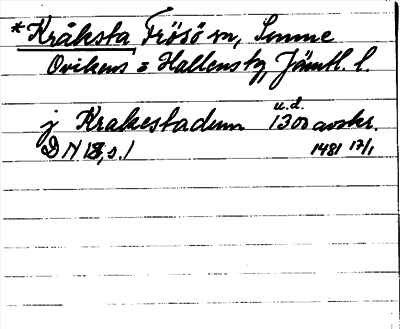 *Kråksta, Frösö sn, Sunne
Ovikens o Hallens tg, Jämtl. l.
u.d.
j Krakestadum 1300 avskr.
DN 18, s. 1 1481 17/1